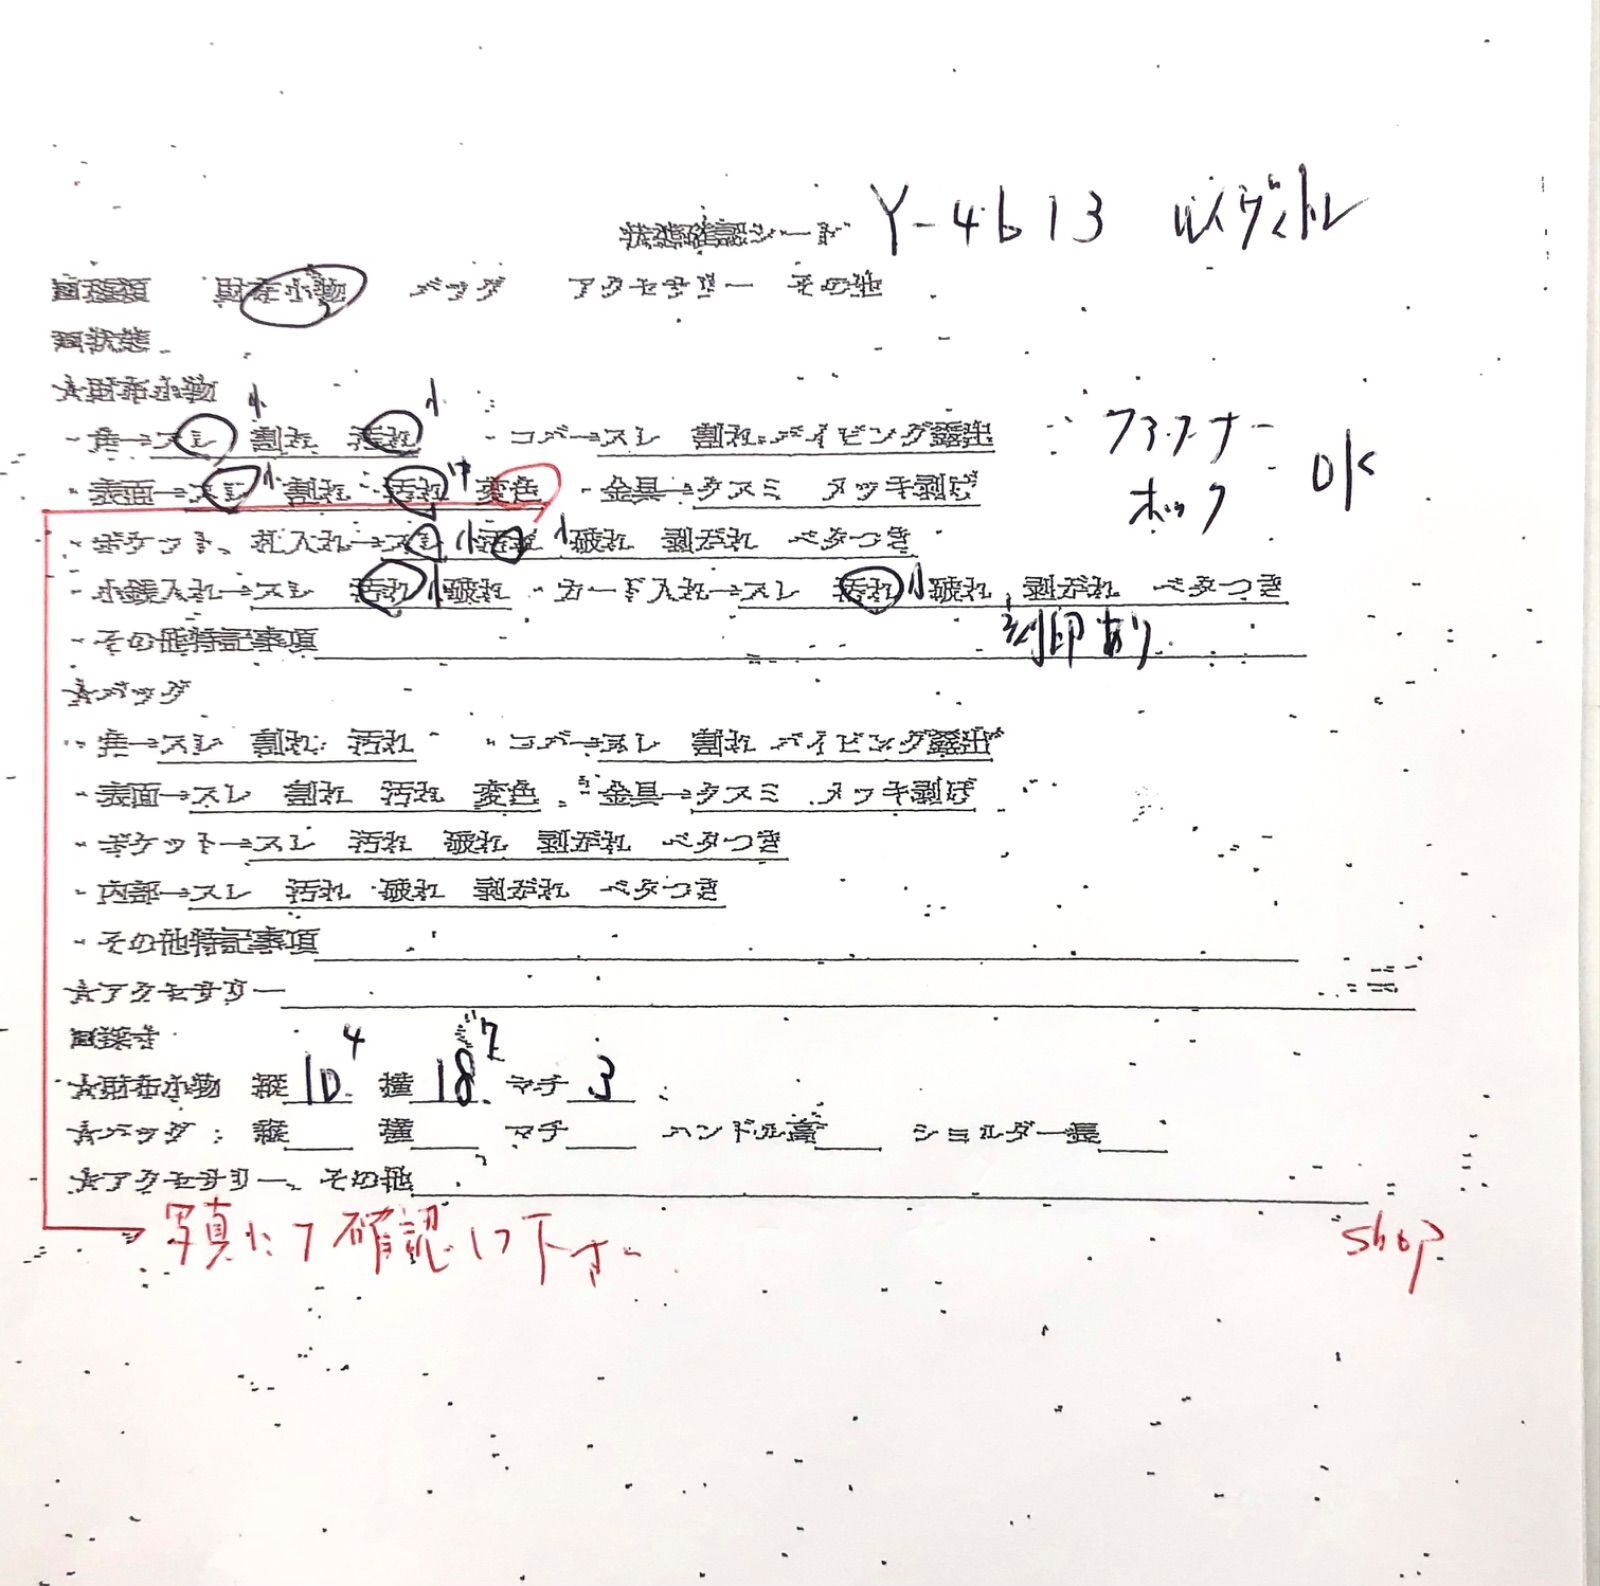 状態確認シート Y-4613 ルイヴィトン
■種類 財布小物 バッグ アクセサリー その他
■状態
★財布小物
・角→スレ小 割れ 汚れ小 ・コバ→スレ 割れ パイピング露出 ファスナー
・表面→スレ小 割れ 汚れ中 変色 ・金具→クスミ メッキ剥げ ホック OK
・ポケット、札入れ→スレ小 汚れ小 破れ 剥がれ ベタつき
・小銭入れ→スレ 汚れ小 破れ ・カード入れ→スレ 汚れ小 破れ 剥がれ ベタつき
・その他特記事項 刻印あり
★バッグ
・角→スレ 割れ 汚れ ・コバ→スレ 割れ パイピング露出
・表面→スレ 割れ 汚れ 変色 ・金具→クスミ メッキ剥げ
・ポケット→スレ 汚れ 破れ 剥がれ ベタつき
・内部→スレ 汚れ 破れ 剥がれ ベタつき
・その他特記事項
★アクセサリー
■採寸
★財布小物 縦 10 4 横 18 7 マチ 3
★バッグ: 縦 横 マチ ハンドル高 ショルダー長
★アクセサリー、その他
写真にて確認して下さい shop